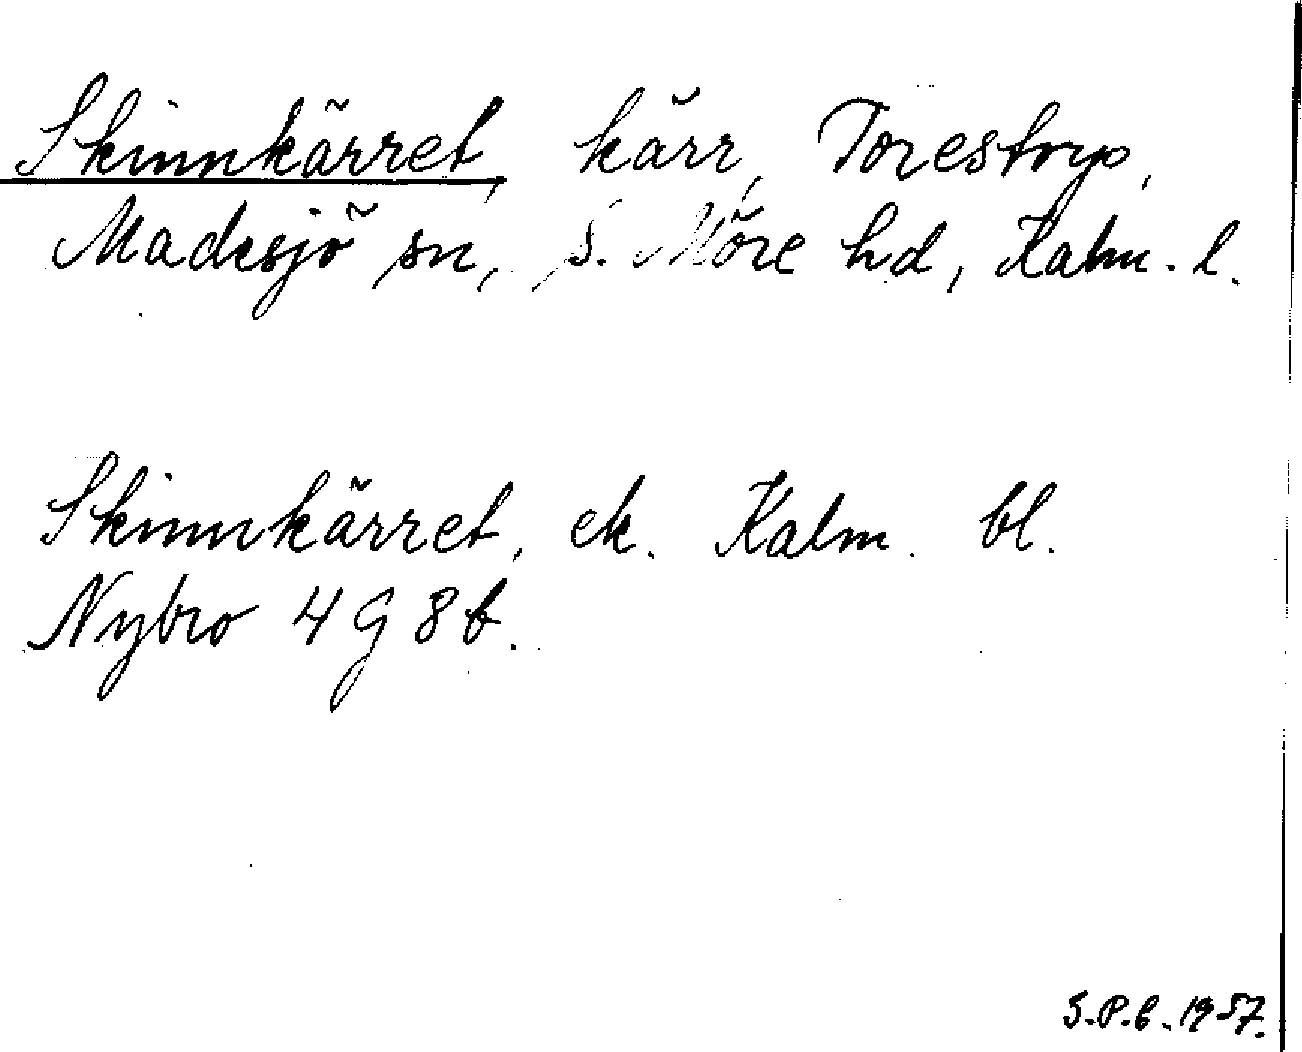 Skinnkärret, kärr, Torestorp,
Madesjö sn, S. Möre hd, Kalm. l.
Skinnkärret, ek. Kalm. bl.
Nybro 4 G 8 b.
S.P.B. 1957.